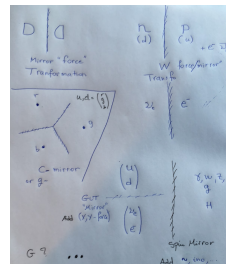 D | D
Mirror "force"
Transformation
n p
(d) (u)
W force/mirror
Transfo
r
g
b
C= mirror
or g-
νe e⁻
(u
d)
GUT
"Mirror"
Add (X,Y- fns)
(νe
e)
γ, W, Z,
g
H
Spin Mirror
G ? ...
Add